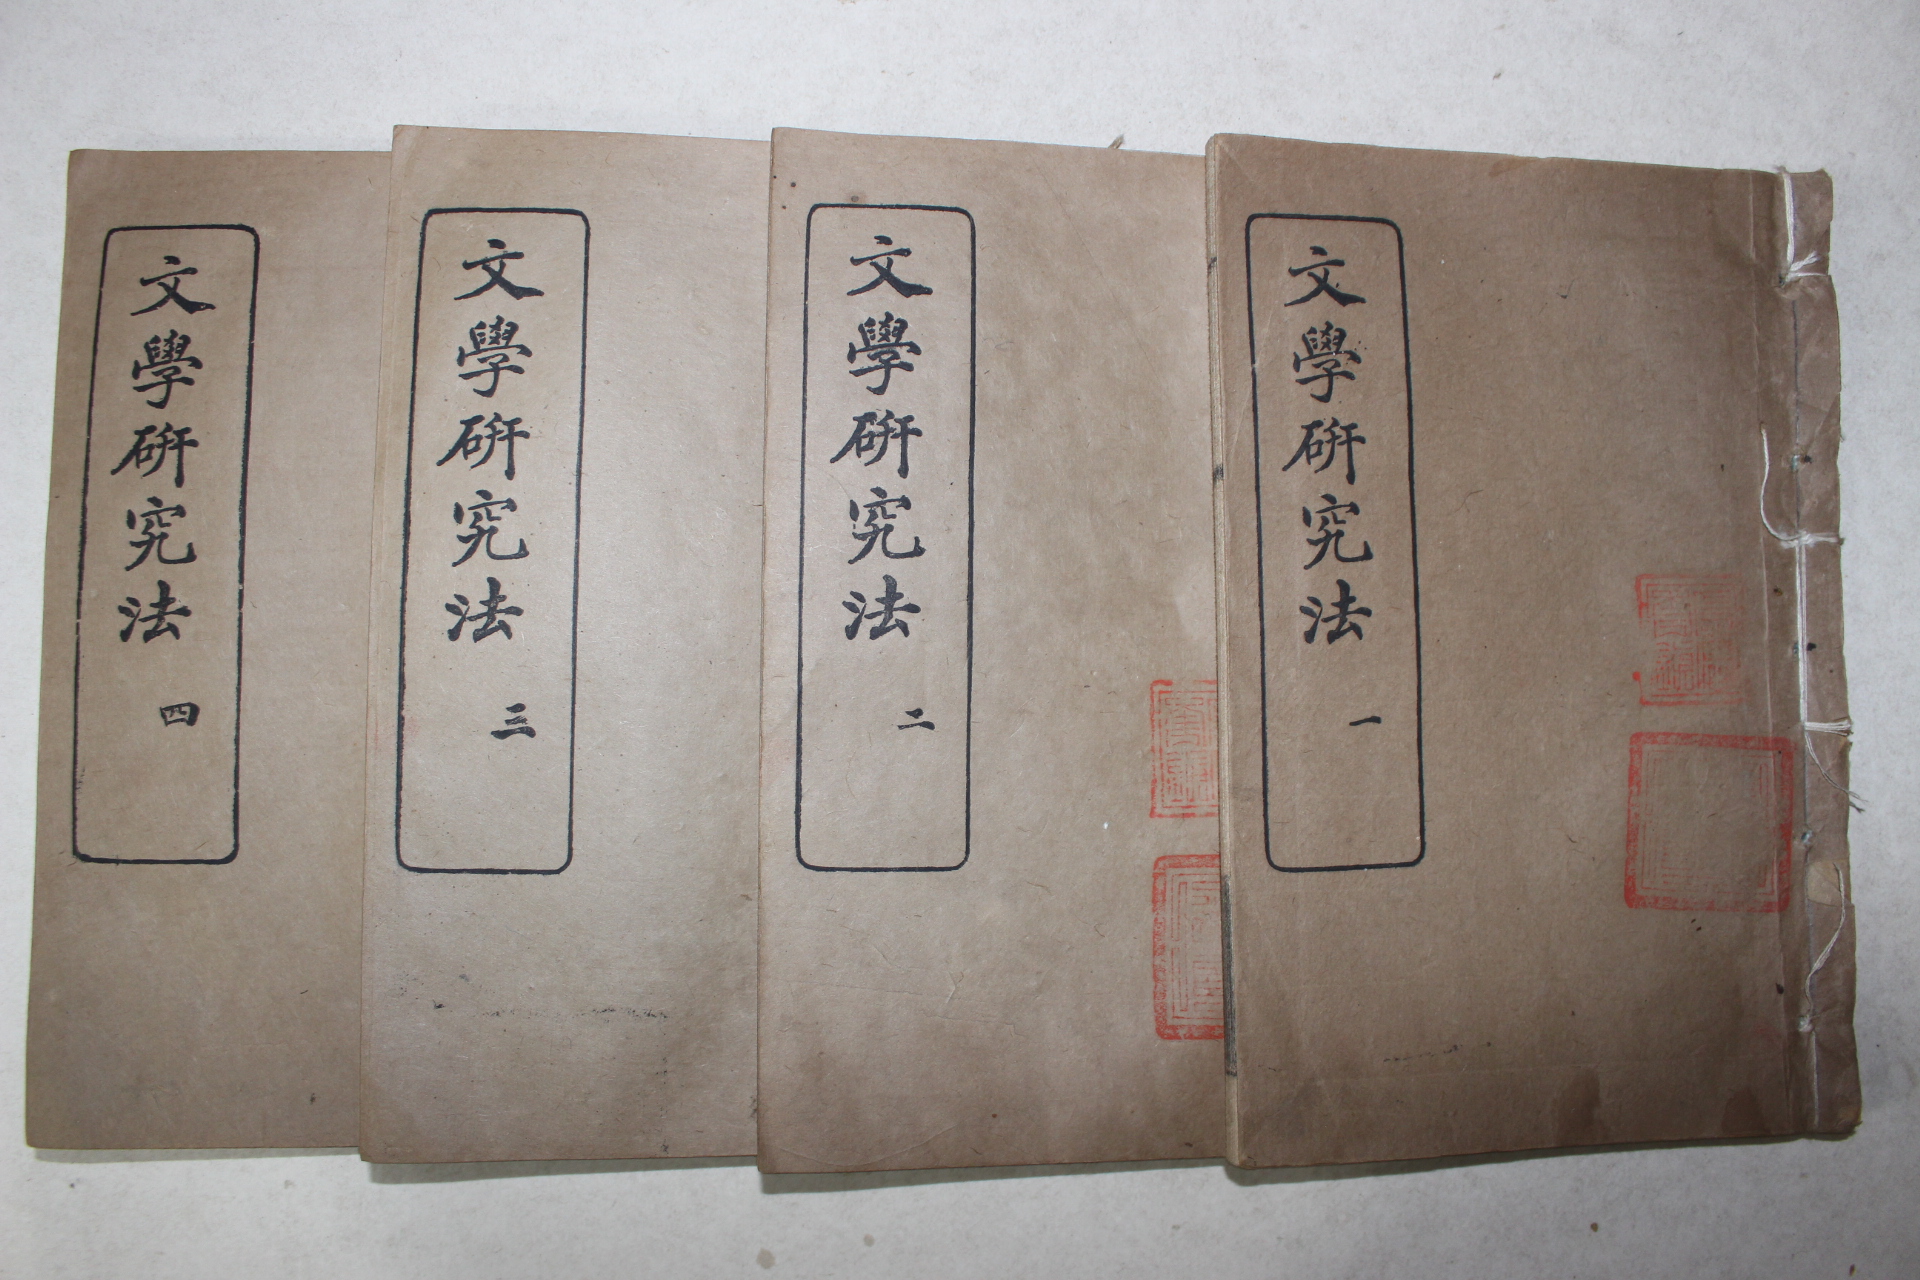 文學研究法 一
文學研究法 二
文學研究法 三
文學研究法 四